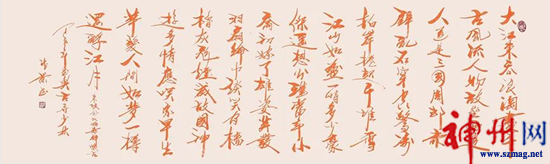 大江東去浪淘
古風流人物故
人道是三國周郎赤
壁乱石穿空驚濤
拍岸捲起千堆雪
江山如畫一時多少豪
傑遥想公瑾當年小
喬初嫁了雄姿英發
羽扇綸巾談笑間檣
櫓灰飛煙滅故國神
游多情應笑我早生
華髮人間如夢一樽
還酹江月
神州网
www.szmag.net